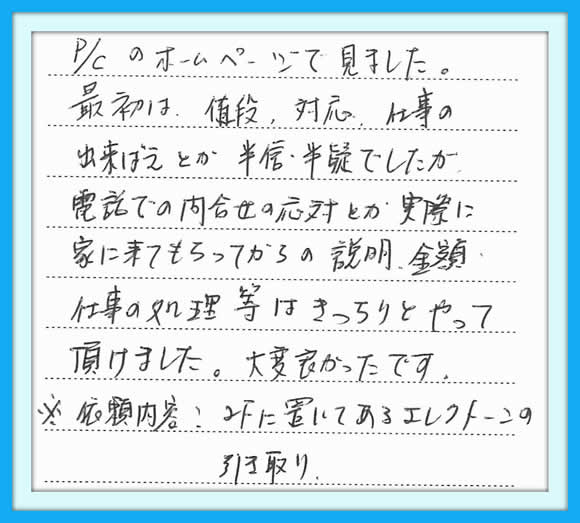 P/Cのホームページで見ました。
最初は、値段、対応、仕事の
出来ばえとか半信・半疑でしたが、
電話での問合せの応対とか実際に
家に来てもらってからの説明、金額・
仕事の処理等はきっちりとやって
頂けました。大変良かったです。
※依頼内容：2Fに置いてあるエレクトーンの
引き取り。